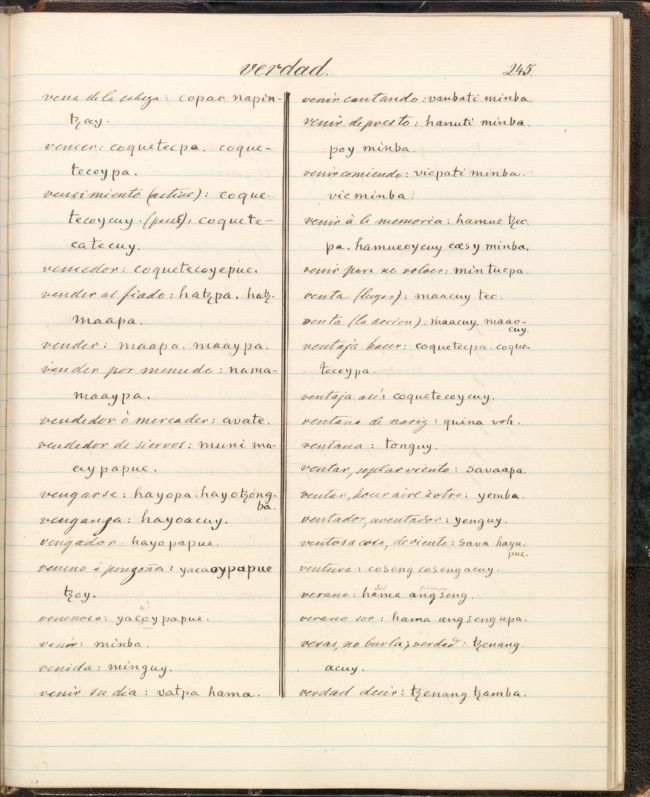 verdad.
245.
vena de la cabeza: copac napin-
tzay.
vencer: coquetecpa. coque-
tecoypa.
vencimiento (active): coque
tecoycuy. (pas): coquete-
catecuy.
vencedor: coquetecoyepue.
vender al fiado: hatzpa. hatz.
maapa.
vender: maapa. maaypa.
vender por menudo: nama-
maaypa.
vendedor ò mercader: avate.
vendedor de siervos: muni ma-
cuypapue.
vengarse: hayopa. hayotzong-
ba.
venganza: hayoacuy.
vengador. hayopapue.
veneno ò ponzoña: yacaoypapue
tzoy.
venenoso: yacoypapue.
venir: minba.
venida: minguy.
venir su dia: vatpa hama.
venir cantando: vanbati minba.
venir de presto: hanuti minba.
poy minba.
venir comiendo: vicpati minba.
vicminba.
venir à la memoria: hamue tzec
pa. hamueoycuy cæsy minba.
venir para no volver: mintucpa.
venta (lugar): maacuy tec.
venta (la accion): maacuy. maao-
cuy.
ventaja hacer: coquetecpa. coque-
tecoypa.
ventaja asi: coquetecoycuy.
ventana de nariz: quina voh.
ventana: tonguy.
ventar, soplar viento: savaapa
ventar, hacer aire à otro: yemba.
ventador, aventador: yenguy.
ventosa cosa, de viento: sava hayu
pue.
ventura: coseng cosengacuy.
sol tiempo
verano: hama angsong.
verano ser: hama angsengapa.
veras, no burla; verdad: tzenang
acuy.
verdad decir: tzenang tzamba.